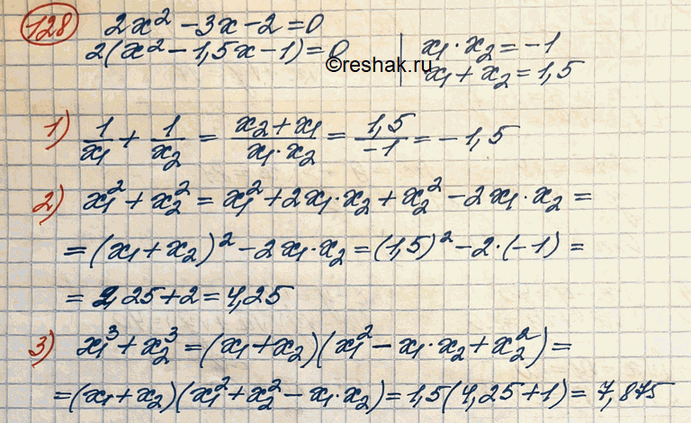 128 2x² - 3x - 2 = 0
2(x² - 1,5x - 1) = 0 | x₁·x₂ = -1
x₁ + x₂ = 1,5
©reshak.ru
1) 1/x₁ + 1/x₂ = (x₂ + x₁)/(x₁·x₂) = 1,5/-1 = -1,5
2) x₁² + x₂² = x₁² + 2x₁·x₂ + x₂² - 2x₁·x₂ =
= (x₁ + x₂)² - 2x₁·x₂ = (1,5)² - 2·(-1) =
= 2,25 + 2 = 4,25
3) x₁³ + x₂³ = (x₁ + x₂)(x₁² - x₁·x₂ + x₂²) =
= (x₁ + x₂)(x₁² + x₂² - x₁·x₂) = 1,5(4,25 + 1) = 7,875